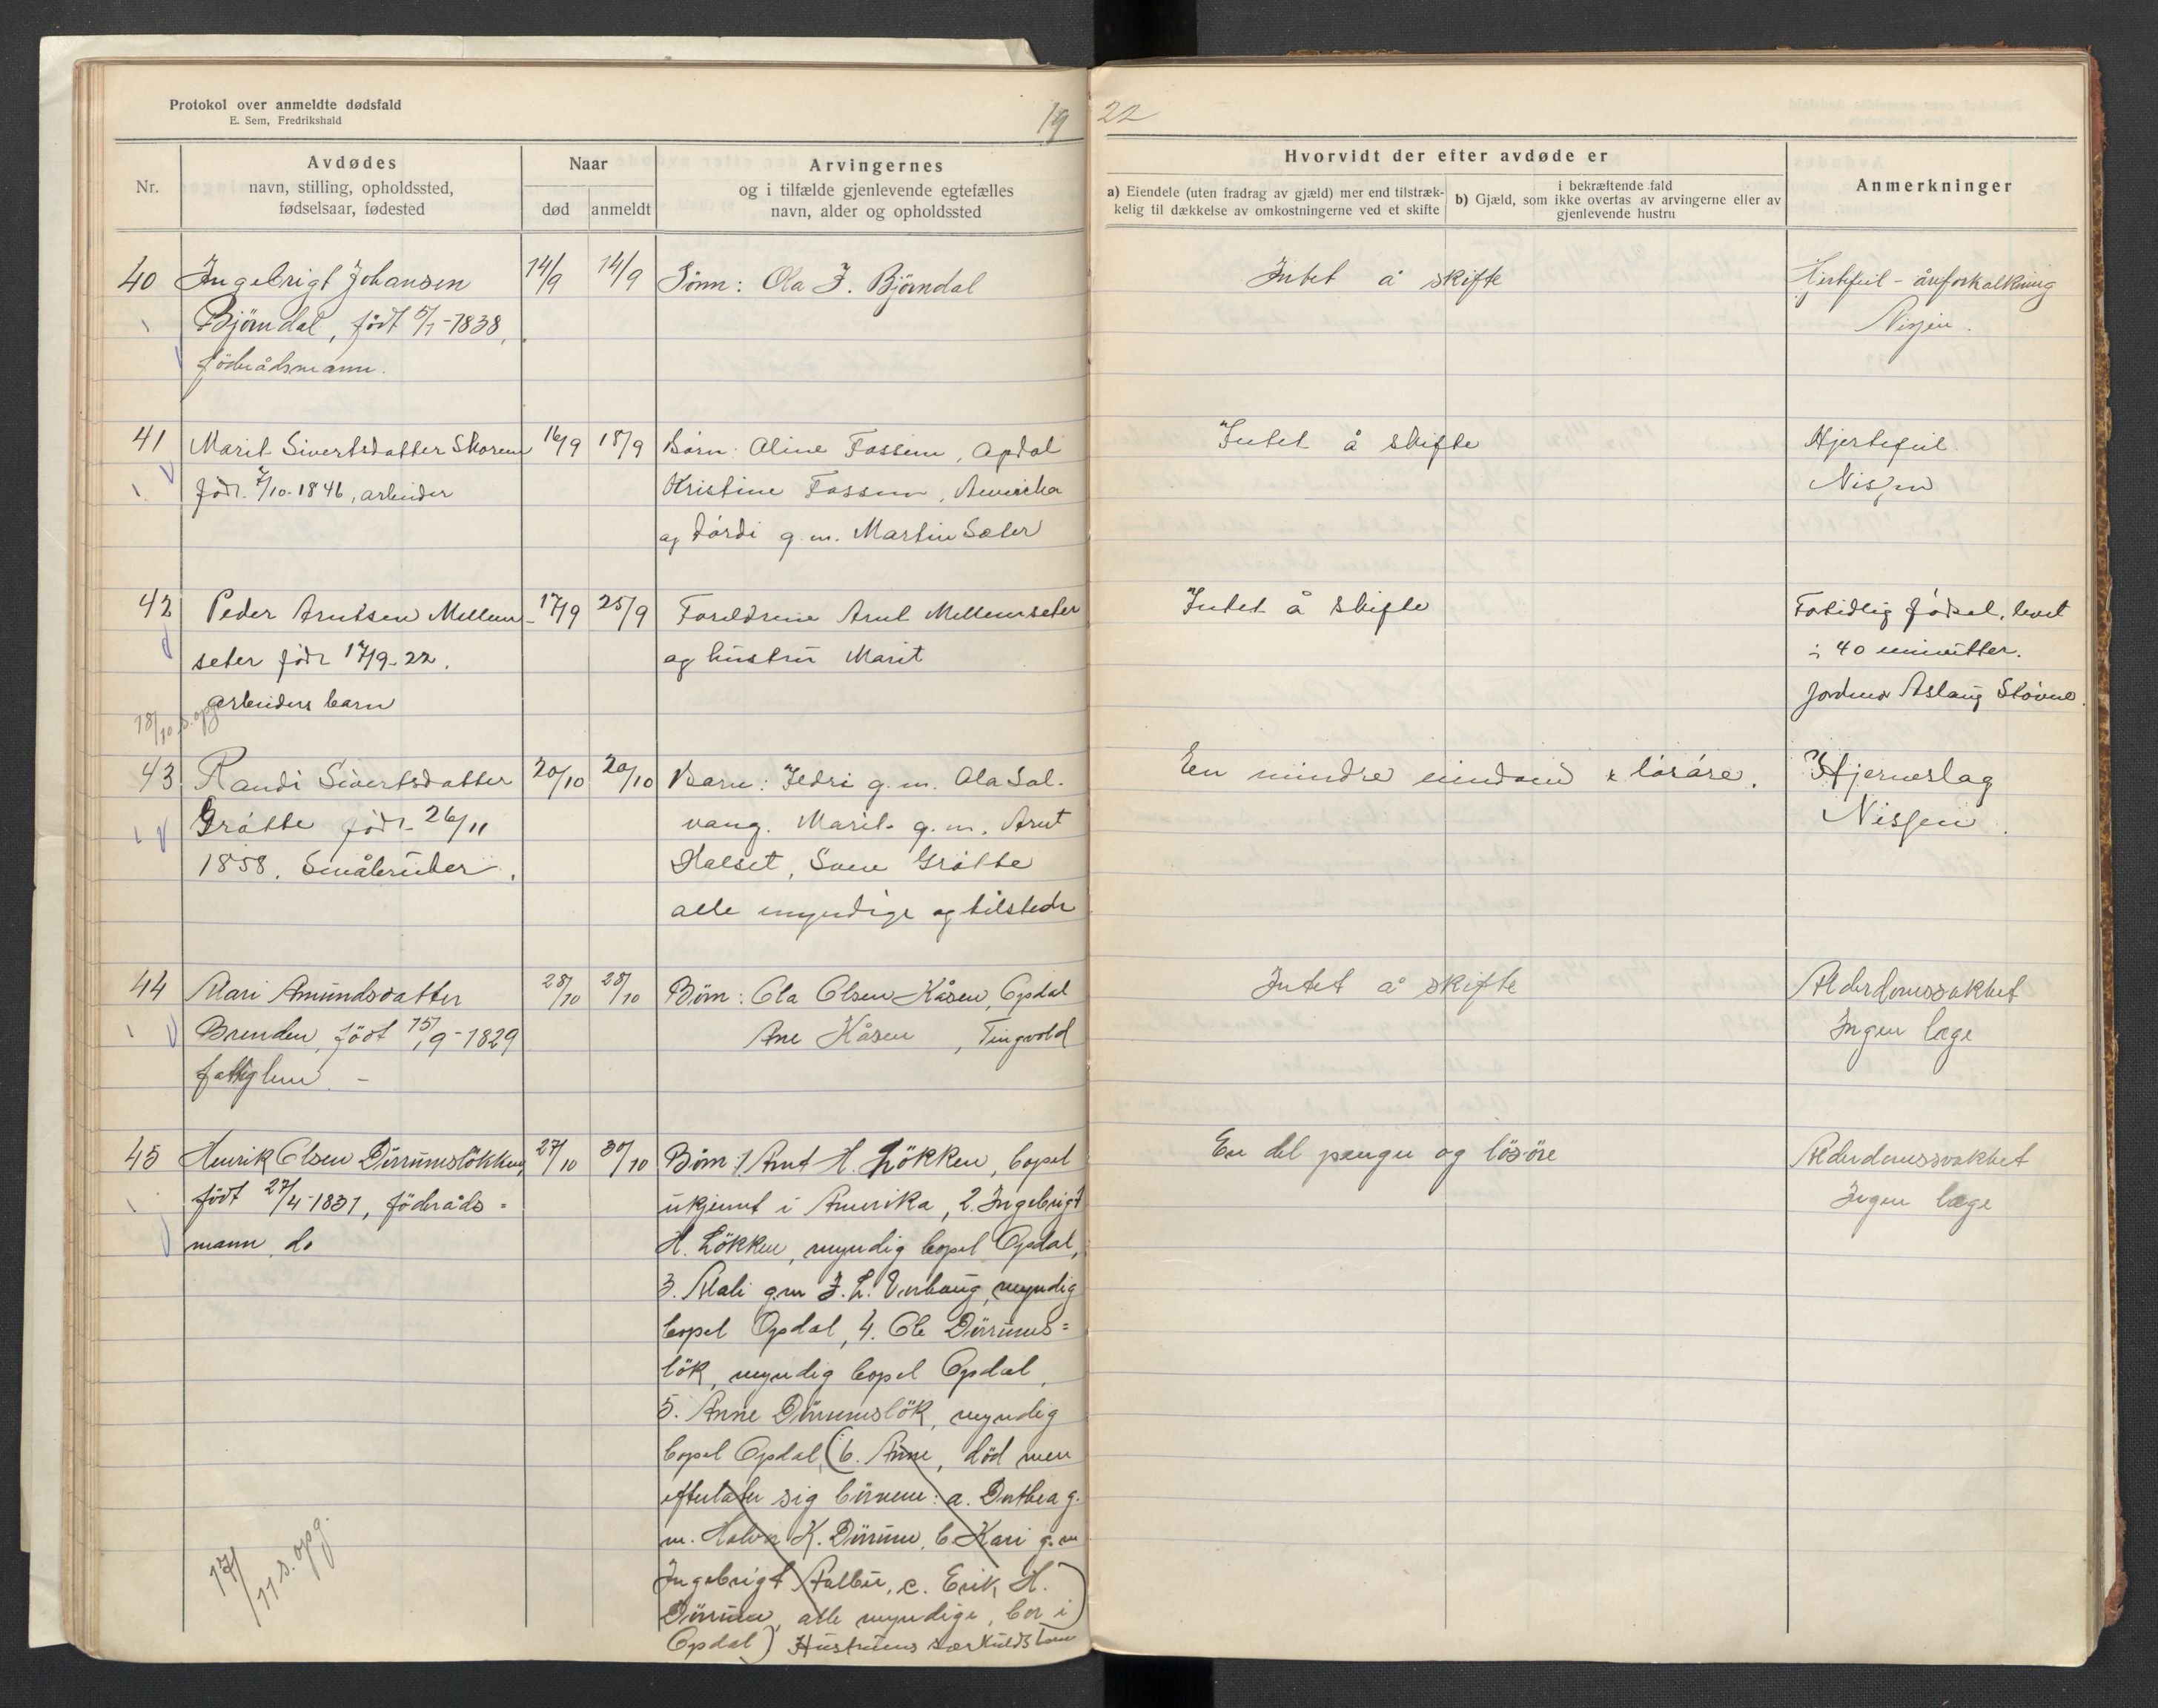 Protokol over anmeldte dødsfald
E. Sem, Fredrikshald
19 22
Nr.
Avdødes
navn, stilling, opholdssted,
fødselsaar, fødested
Naar
død anmeldt
Arvingernes
og i tilfælde gjenlevende egtefælles
navn, alder og opholdssted
Hvorvidt der efter avdøde er
a) Eiendele (uten fradrag av gjæld) mer end tilstræk-
kelig til dækkelse av omkostningerne ved et skifte
i bekræftende fald
b) Gjæld, som ikke overtas av arvingerne eller av
gjenlevende hustru
Anmerkninger
40 Ingebrigt Johansen 14/9 14/9 Sönn: Ola J. Björndal Intet å skifte Hjertefeil - åreforkalkning
Björndal, födt 5/1-1838, Nissen.
föderådsmann.
41 Marit Sivertsdatter Skorem 16/9 18/9 Barn: Aline Fossem, Opdal Intet å skifte Hjertefeil
född. 7/10-1846, arbeider Kristine Fossum, Amerika Nissen
og Dórdi g.m. Martin Sæter
42 Peder Arntsen Mellem- 17/9 25/9 Foreldrene Arnt Mellemseter Intet å skifte Fortidlig födsel, levet
seter födt 17/9-22. og hustru Marit i 40 minutter.
arbeiders barn Jordmor Aslaug Stövne.
18/10 s. opg.
43 Randi Sivertsdatter 20/10 20/10 Barn: Jedri g.m. Ola Sol- En mindre eiendom & lösöre. Hjerneslag
Grötte född. 26/11 vang. Marit g.m. Arnt Nissen.
1858. Småbruker. Halset, Sven Grötte
alle myndige og tilstede
44 Mari Amundsdatter 28/10 28/10 Börn: Ola Olsen Kåsen, Opdal Intet å skifte Alderdomssvakhet
Brenden, födt 15/9-1829 Ane Kåsen, Tingvold Ingen læge
fattiglem. -
45 Henrik Olsen Dörrumslökken, 27/10 30/10 Börn: 1 Arnt H. Lökken, bopel En del penger og lösöre Alderdomssvakhet
födt 27/4-1831, föderåds= ukjennt i Amerika, 2. Ingebrigt Ingen læge
mann do H. Lökken, myndig bopel Opdal,
3. Mali g.m J. L. Vorhaug, myndig
bopel Opdal, 4. Ole Dörrums=
lök, myndig bopel Opdal,
5. Anne Dörrumslök, myndig
bopel Opdal, (6. Anne, död men
efterlater sig börnene: a. Dorthea g.
m. Halvor K. Dörrum, b. Kari g.m
Ingebrigt Aalbu, c. Erik H.
Dörrum, alle myndige, bor i
Opdal) Hustruens særkuldsbarn
17/11 s. opg.